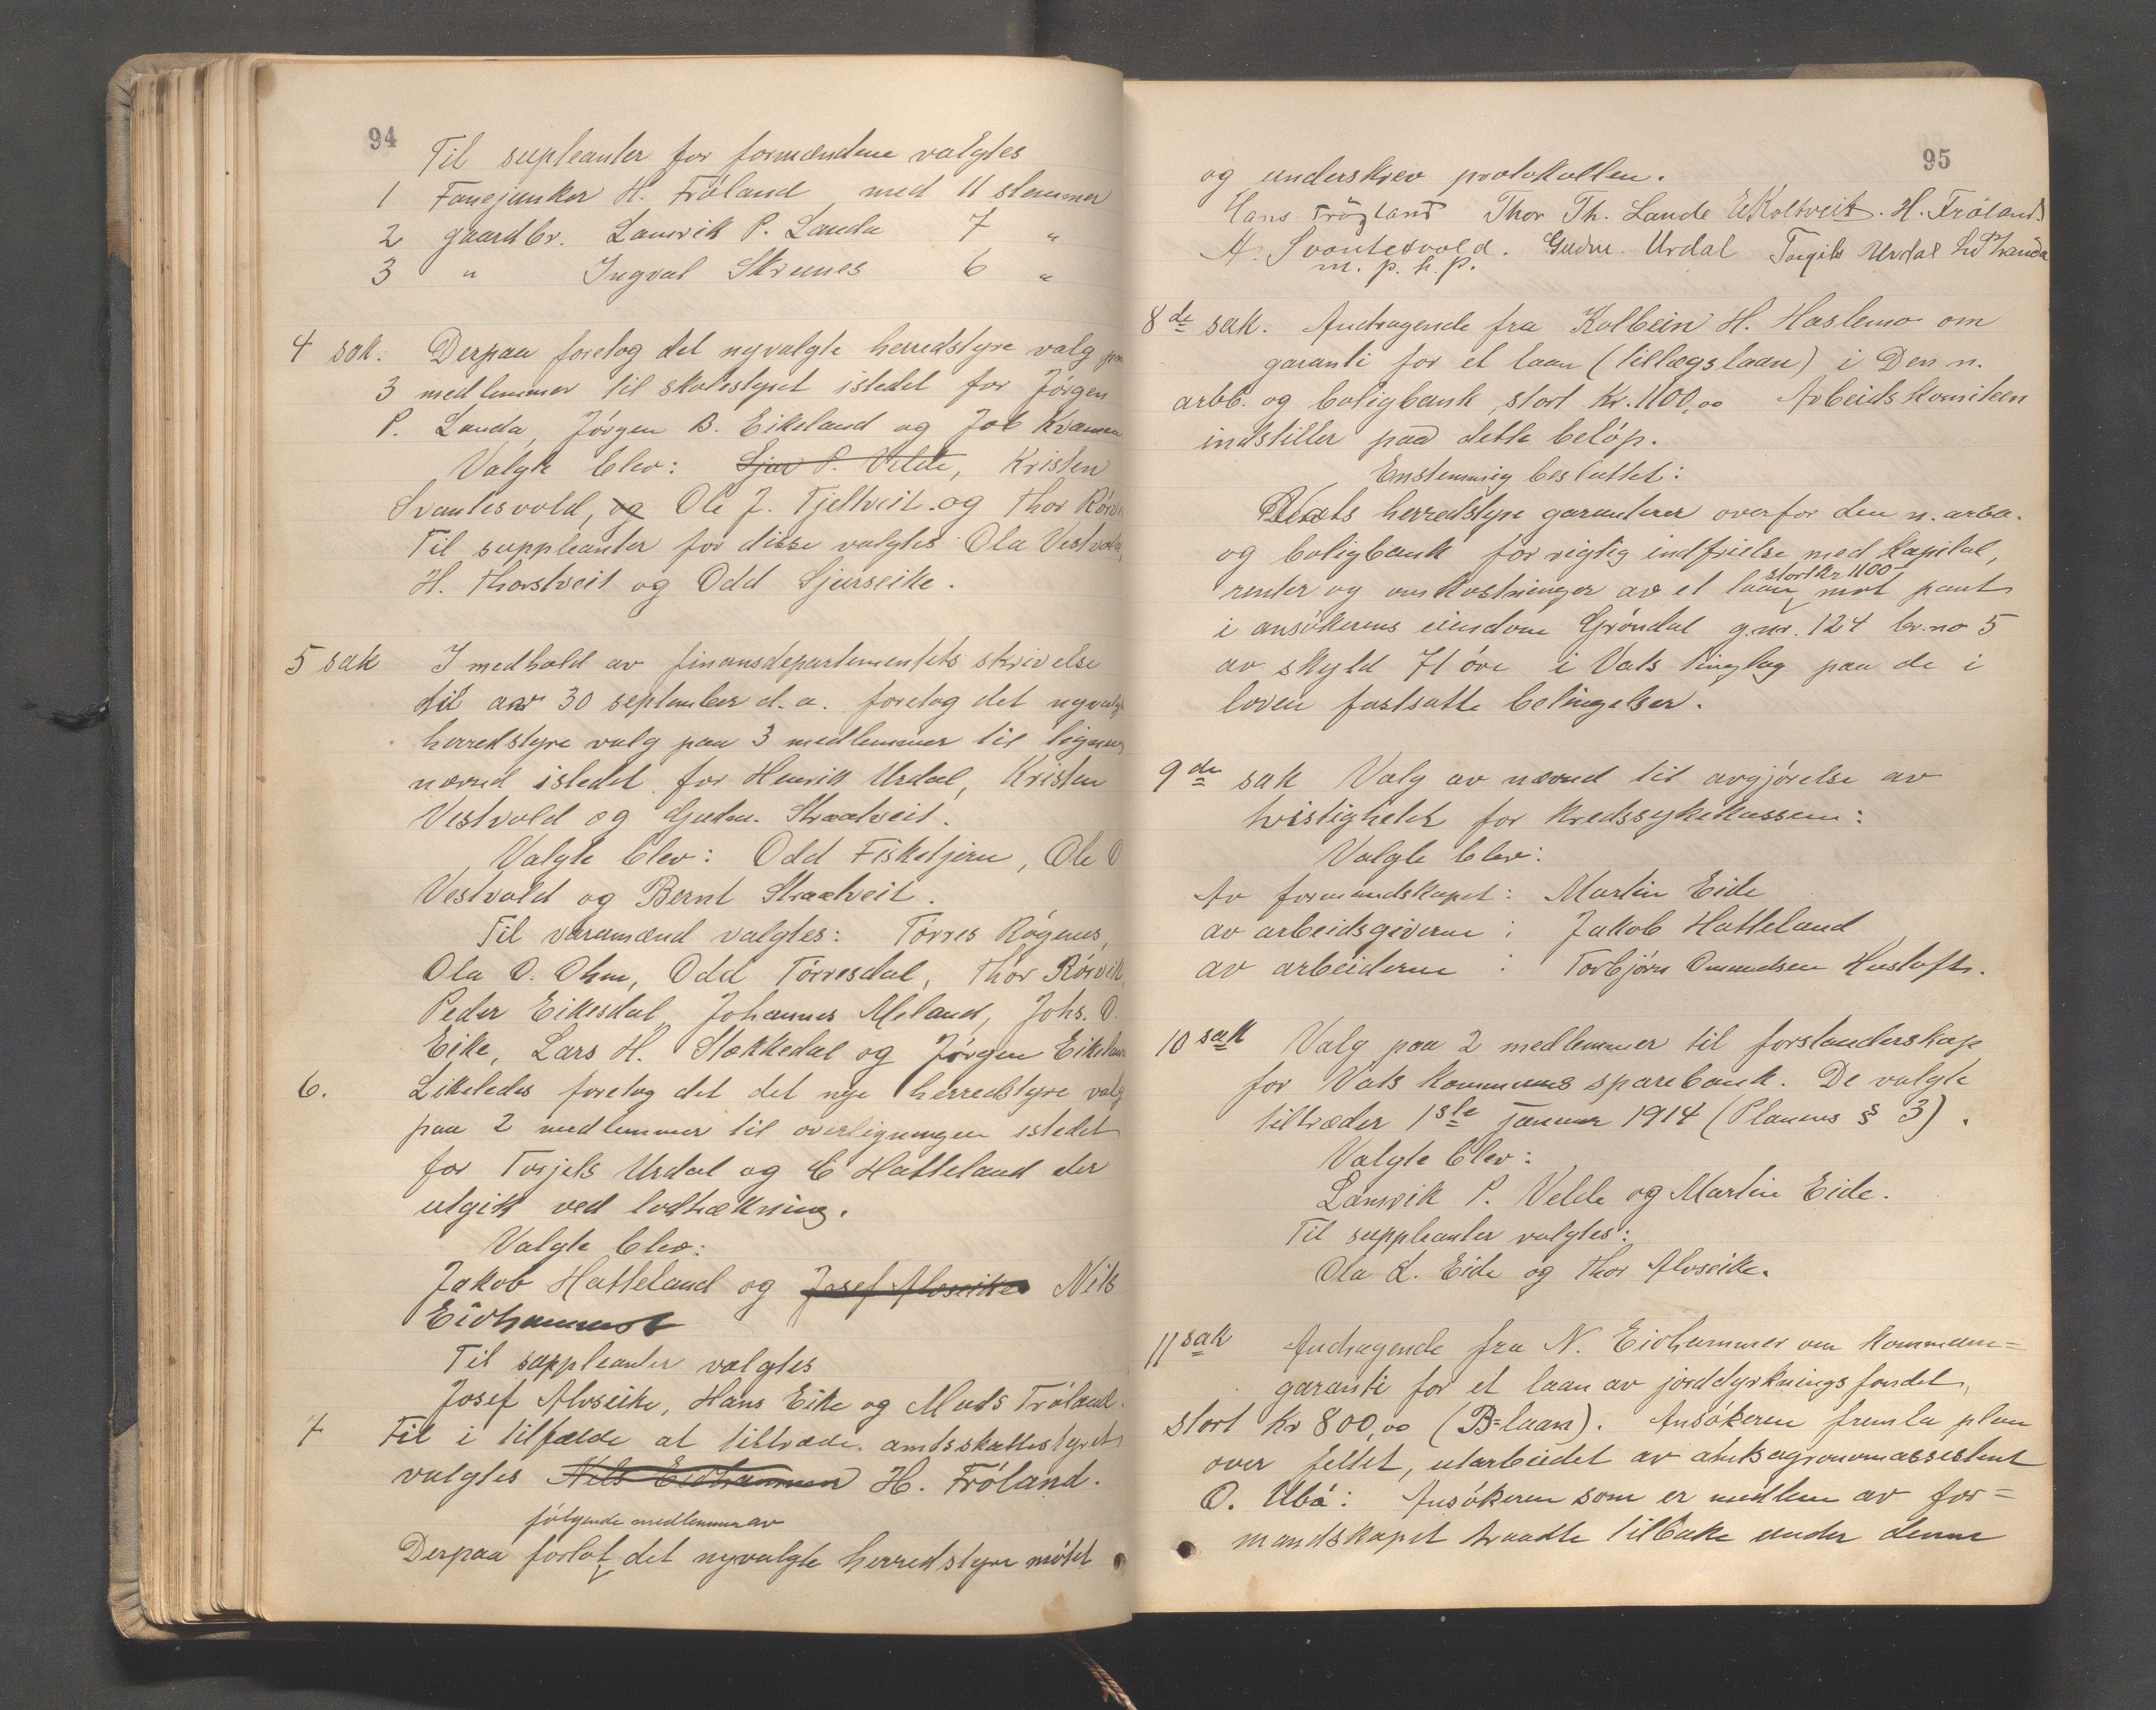 94
Til supleanter for formændene valgtes
1 Fanejunker H. Fröland med 11 stemmer
2 gaardbr. Lauvvik P. Landa 7 "
3 " Ingval Skrunes 6 "
4 sak. Derpaa foretog det nyvalgte herredstyre valg paa
3 medlemmer til skolestyret istedet for Jörgen
P. Landa, Jörgen B. Eikeland og Job Kvamen
Valgte blev: Sjur P. Velde, Kristen
Svantesvold, og Ole J. Fjeltveit og Thor Rörv
Til suppleanter for disse valgtes Ola Vestvold,
H. Thorstveit og Odd Sjurseike.
5 sak I medhold av finansdepartementets skrivelse
til av 30 september d.a. foretog det nyvalgte
herredstyre valg paa 3 medlemmer til lignings
nævnd istedet for Henrik Urdal, Kristen
Vestvold og Gudm. Straatveit.
Valgte blev: Odd Fisketjern, Ole O
Vestvold og Bernt Straatveit.
Til varamænd valgtes: Törres Rögnes,
Ola O. Ohm, Odd Törresdal, Thor Rörvik,
Peder Eikesdal, Johannes Meland, Johs. O.
Eike, Lars H. Stokkedal og Jörgen Eikeland
6. Likeledes foretog det det nye herredstyre valg
paa 2 medlemmer til overligningen istedet
for Torjels Urdal og E Hatteland der
utgik ved lodtrækning.
Valgte blev:
Jakob Hatteland og Josef Alvseike Nils
Eidhammer
Til suppleanter valgtes
Josef Alvseike, Hans Eike og Mads Fröland.
7 Til i tilfælde at tiltræde amtsskattestyret
valgtes Nils Eidhammer H. Fröland.
følgende medlemmer av
Derpaa forlot det nyvalgte herredstyre mötet
95
og underskrev protokollen.
Hans Fröyland Thor Th. Lande E Koltveit. H. Fröland
A. Svantesvold. Gudm. Urdal Torgils Urdal L. P Landa
m. p. h. p.
8de sak. Andragende fra Kolbein H. Haslemo om
garanti for et laan (tillægslaan) i Den n.
arbb. og boligbank, stort Kr. 1100,00 Arbeidskomiteen
indstiller paa dette belöp.
Enstemmig besluttet:
Vats herredstyre garanterer overfor den n. arbb.
og boligbank for rigtig indfrielse med kapital,
stort kr 1100
renter og omkostninger av et laan mot pant
i ansökerens eiendom Gröndal g.nr. 124 br.no 5
av skyld 71 öre i Vats tinglag paa de i
loven fastsatte betingelser.
9de sak Valg av nævnd til avgjörelse av
tvistigheter for kredssykekassen:
Valgte blev:
Av formandskapet: Martin Eide
av arbeidsgiverne : Jakob Hatteland
av arbeiderne : Torbjörn Omundsen Hustoft.
10 sak Valg paa 2 medlemmer til forstanderskap
for Vats kommunes sparebank. De valgte
tiltræder 1ste januar 1914 (Planens § 3).
Valgte blev:
Lauvvik P. Velde og Martin Eide.
Til suppleanter valgtes:
Ola L. Eide og Thor Alvseike.
11 sak Andragende fra N. Eidhammer om kommune=
garanti for et laan av jorddyrkningsfondet,
stort kr 800,00 (B=laan). Ansökeren fremla plan
over feltet, utarbeidet av amtsagronomassistent
O. Ubö: Ansökeren som er medlem av for=
mandskapet traadte tilbake under denne